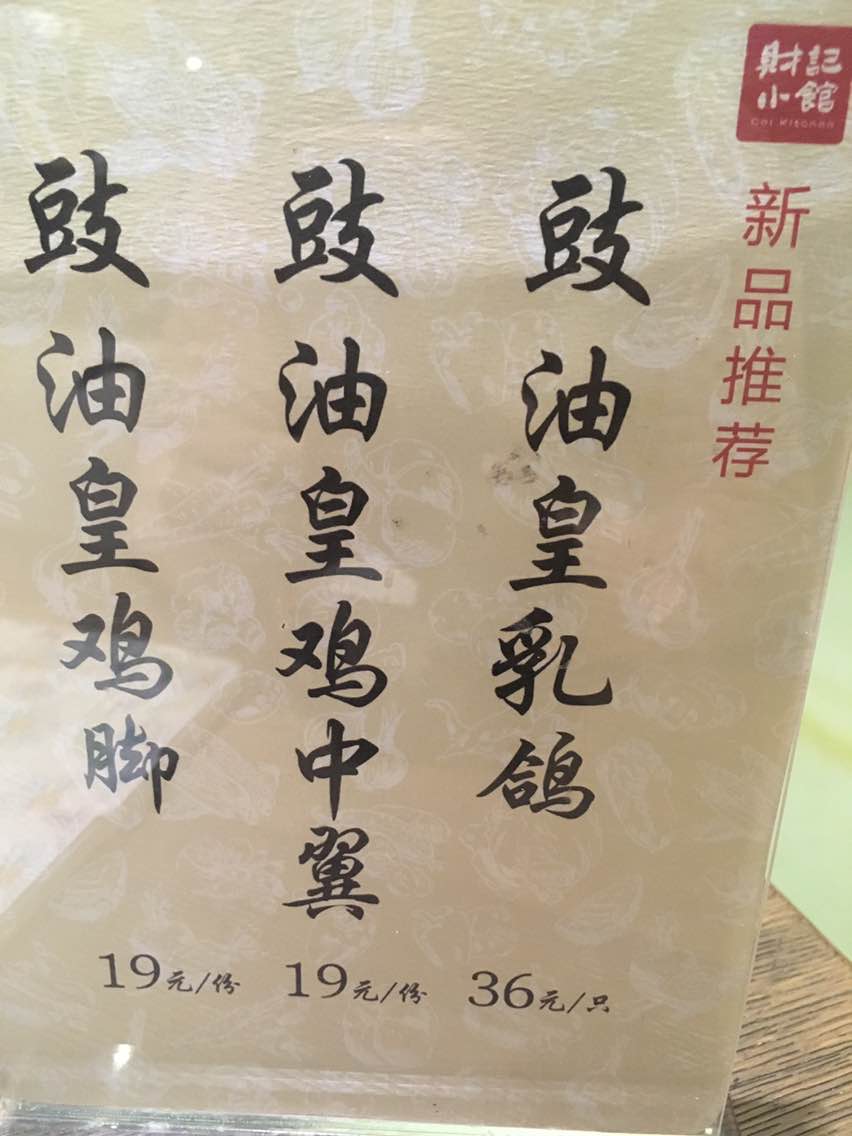 財記
小館
Cai Kitchen
新品推荐
豉油皇乳鸽
36元/只
豉油皇鸡中翼
19元/份
豉油皇鸡脚
19元/份